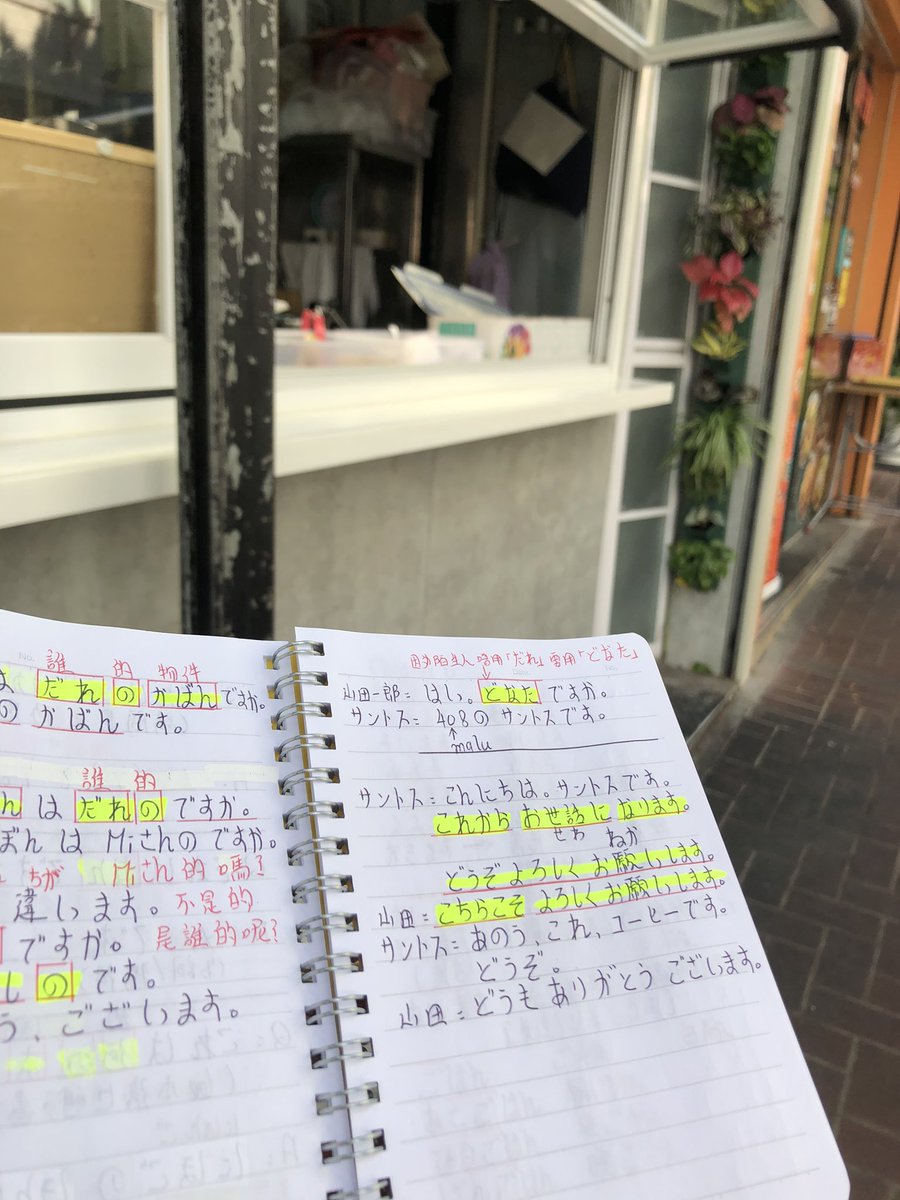 誰 的 物件
だれ の かばん ですか。
の かばん です。
誰 的
は だれ の ですか。
ぼん は Miさんの ですか。
ちが Miさん的 嗎?
違します。不是的
ですか。 是誰的呢?
の です。
う、ございます。
生人 用「だれ」 用「どなた」
山田一郎: はい。どなた ですか。
サントス: 408の サントスです。
malu
サントス: こんにちは。サントスです。
これから お世話に なります。
せわ ねが
どうぞ よろしく お願いします。
山田: こちらこそ よろしく お願いします。
サントス: あのう、これ、コーヒーです。
どうぞ。
山田: どうも ありがとう ございます。